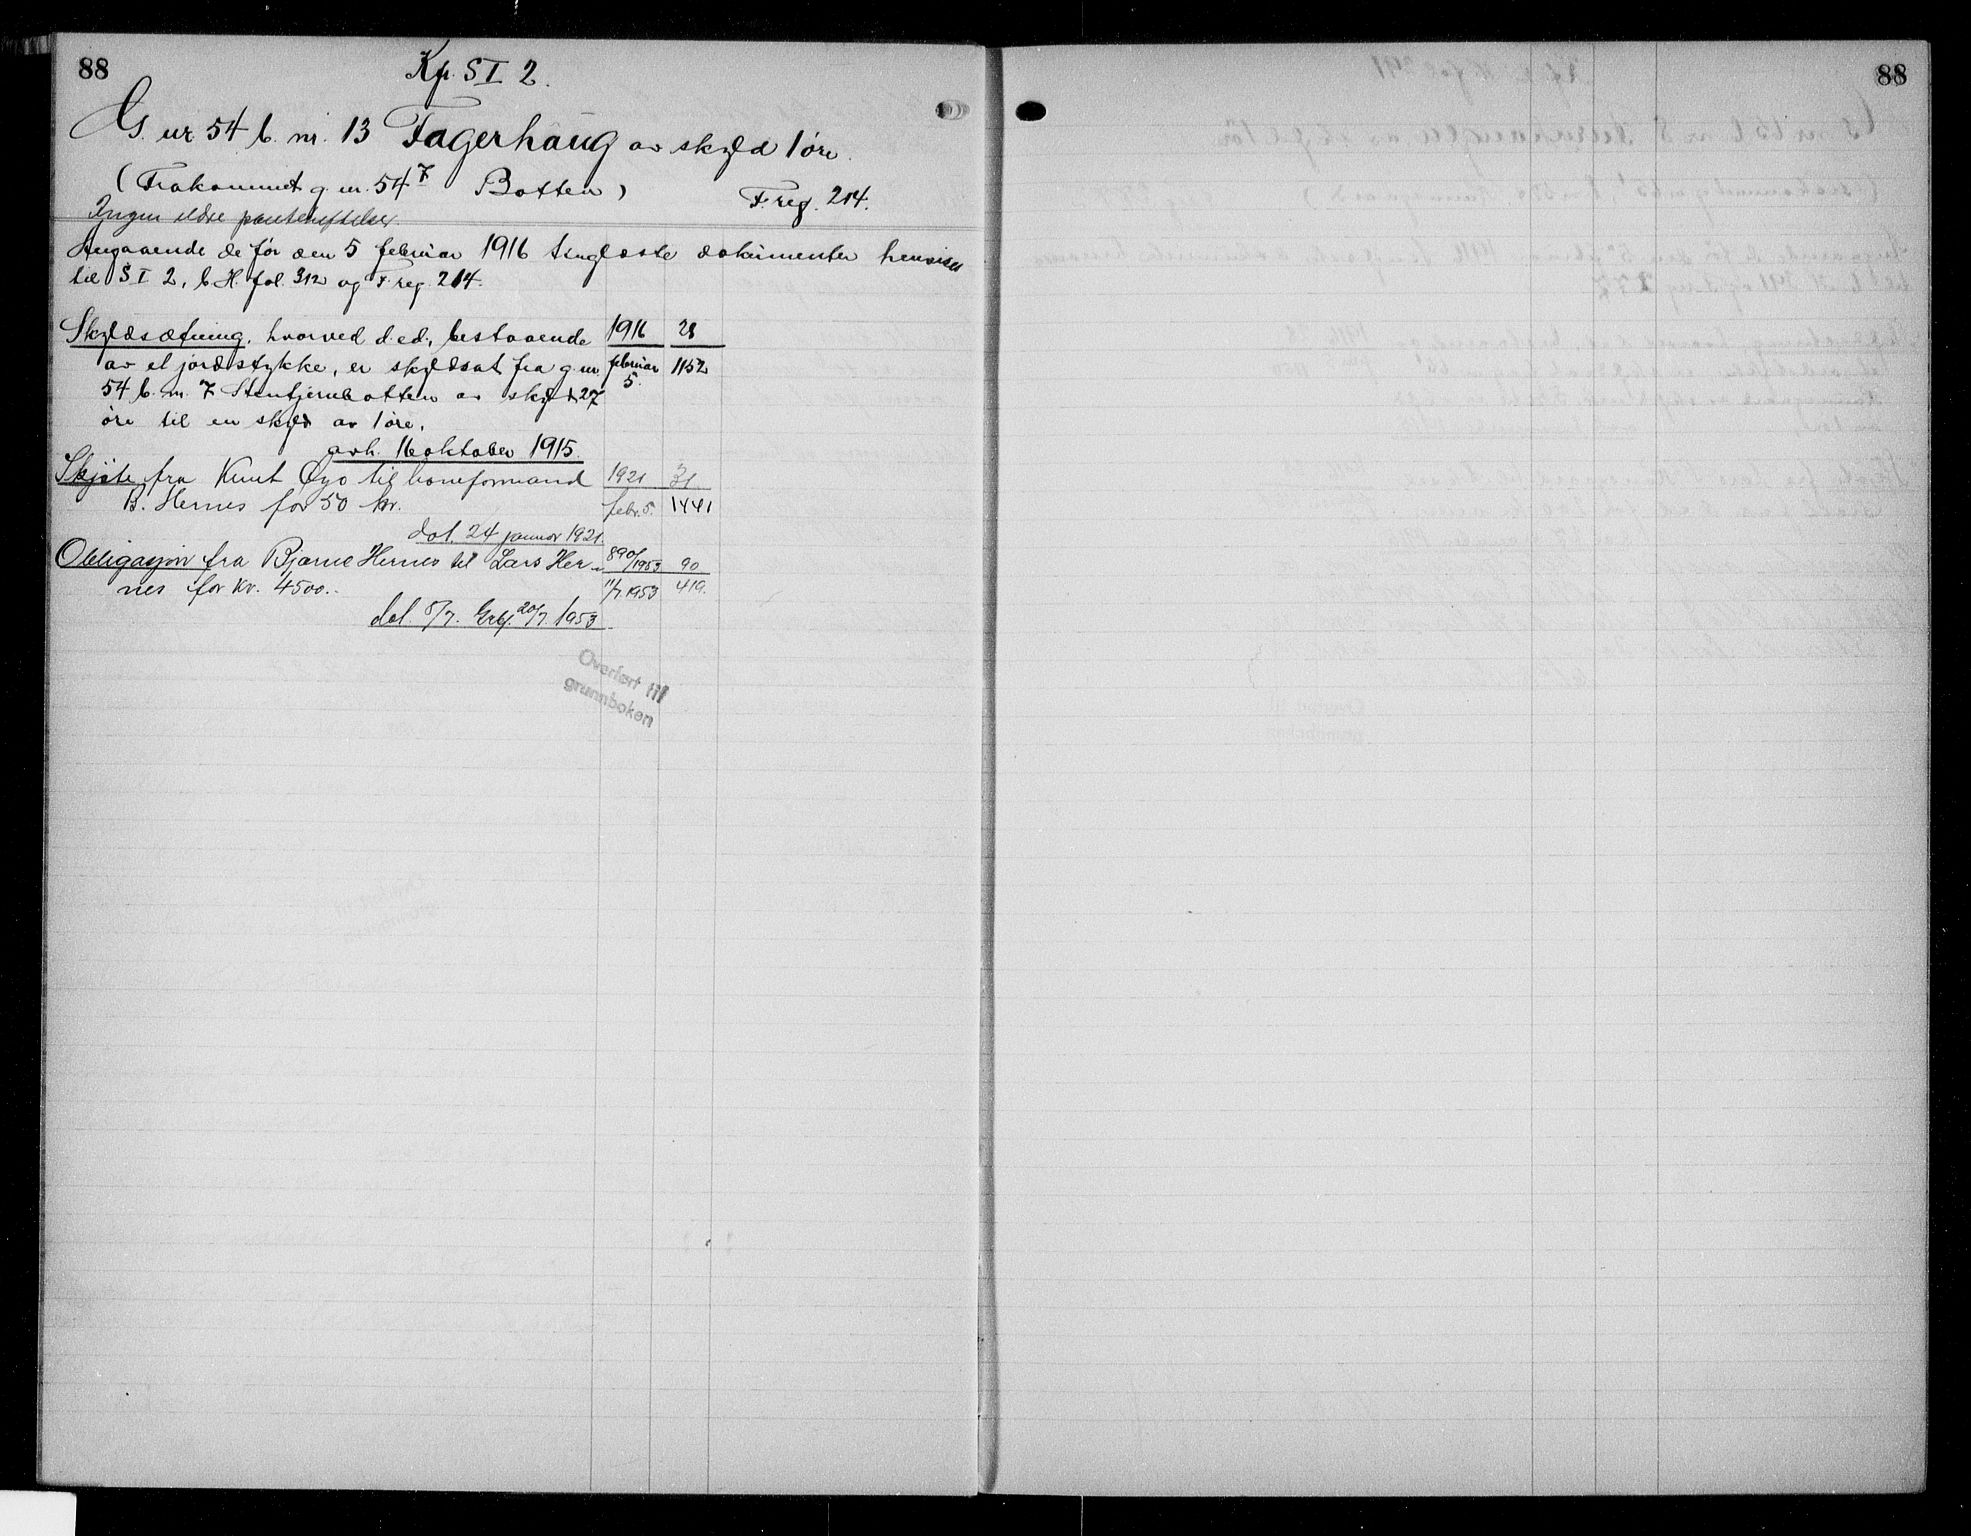 88
Kp. S I 2.
G. nr 54 b. nr. 13 Fagerhaug av skyld 1 øre.
(Frakommet g. nr. 54⁷ Botten)
F. reg. 214.
Ingen eldre pantehæftelser
Angaaende de før den 5 februar 1916 tinglæste dokumenter henvises
til S I 2, b H. fol. 312 og F. reg. 214.
Skyldsætning, hvorved d. ed., bestaaende 1916 28
av et jordstykke, er skyldsat fra g. nr. februar 1152
54 b. nr. 7 Stentjernbotten av skyld 27 5.
øre til en skyld av 1 øre.
avh. 16 oktober 1915.
Skjøte fra Knut Øyo til baneformand 1921 31
B. Hernes for 50 kr. febr. 5. 1441
dat. 24 januar 1921.
Obligasjon fra Bjarne Hernes til Lars Her- 890/1953 90
nes for kr. 4500.- 11/7.1953 419.
dat. 5/7. 20/7 1953
Overført til
grunnboken
88